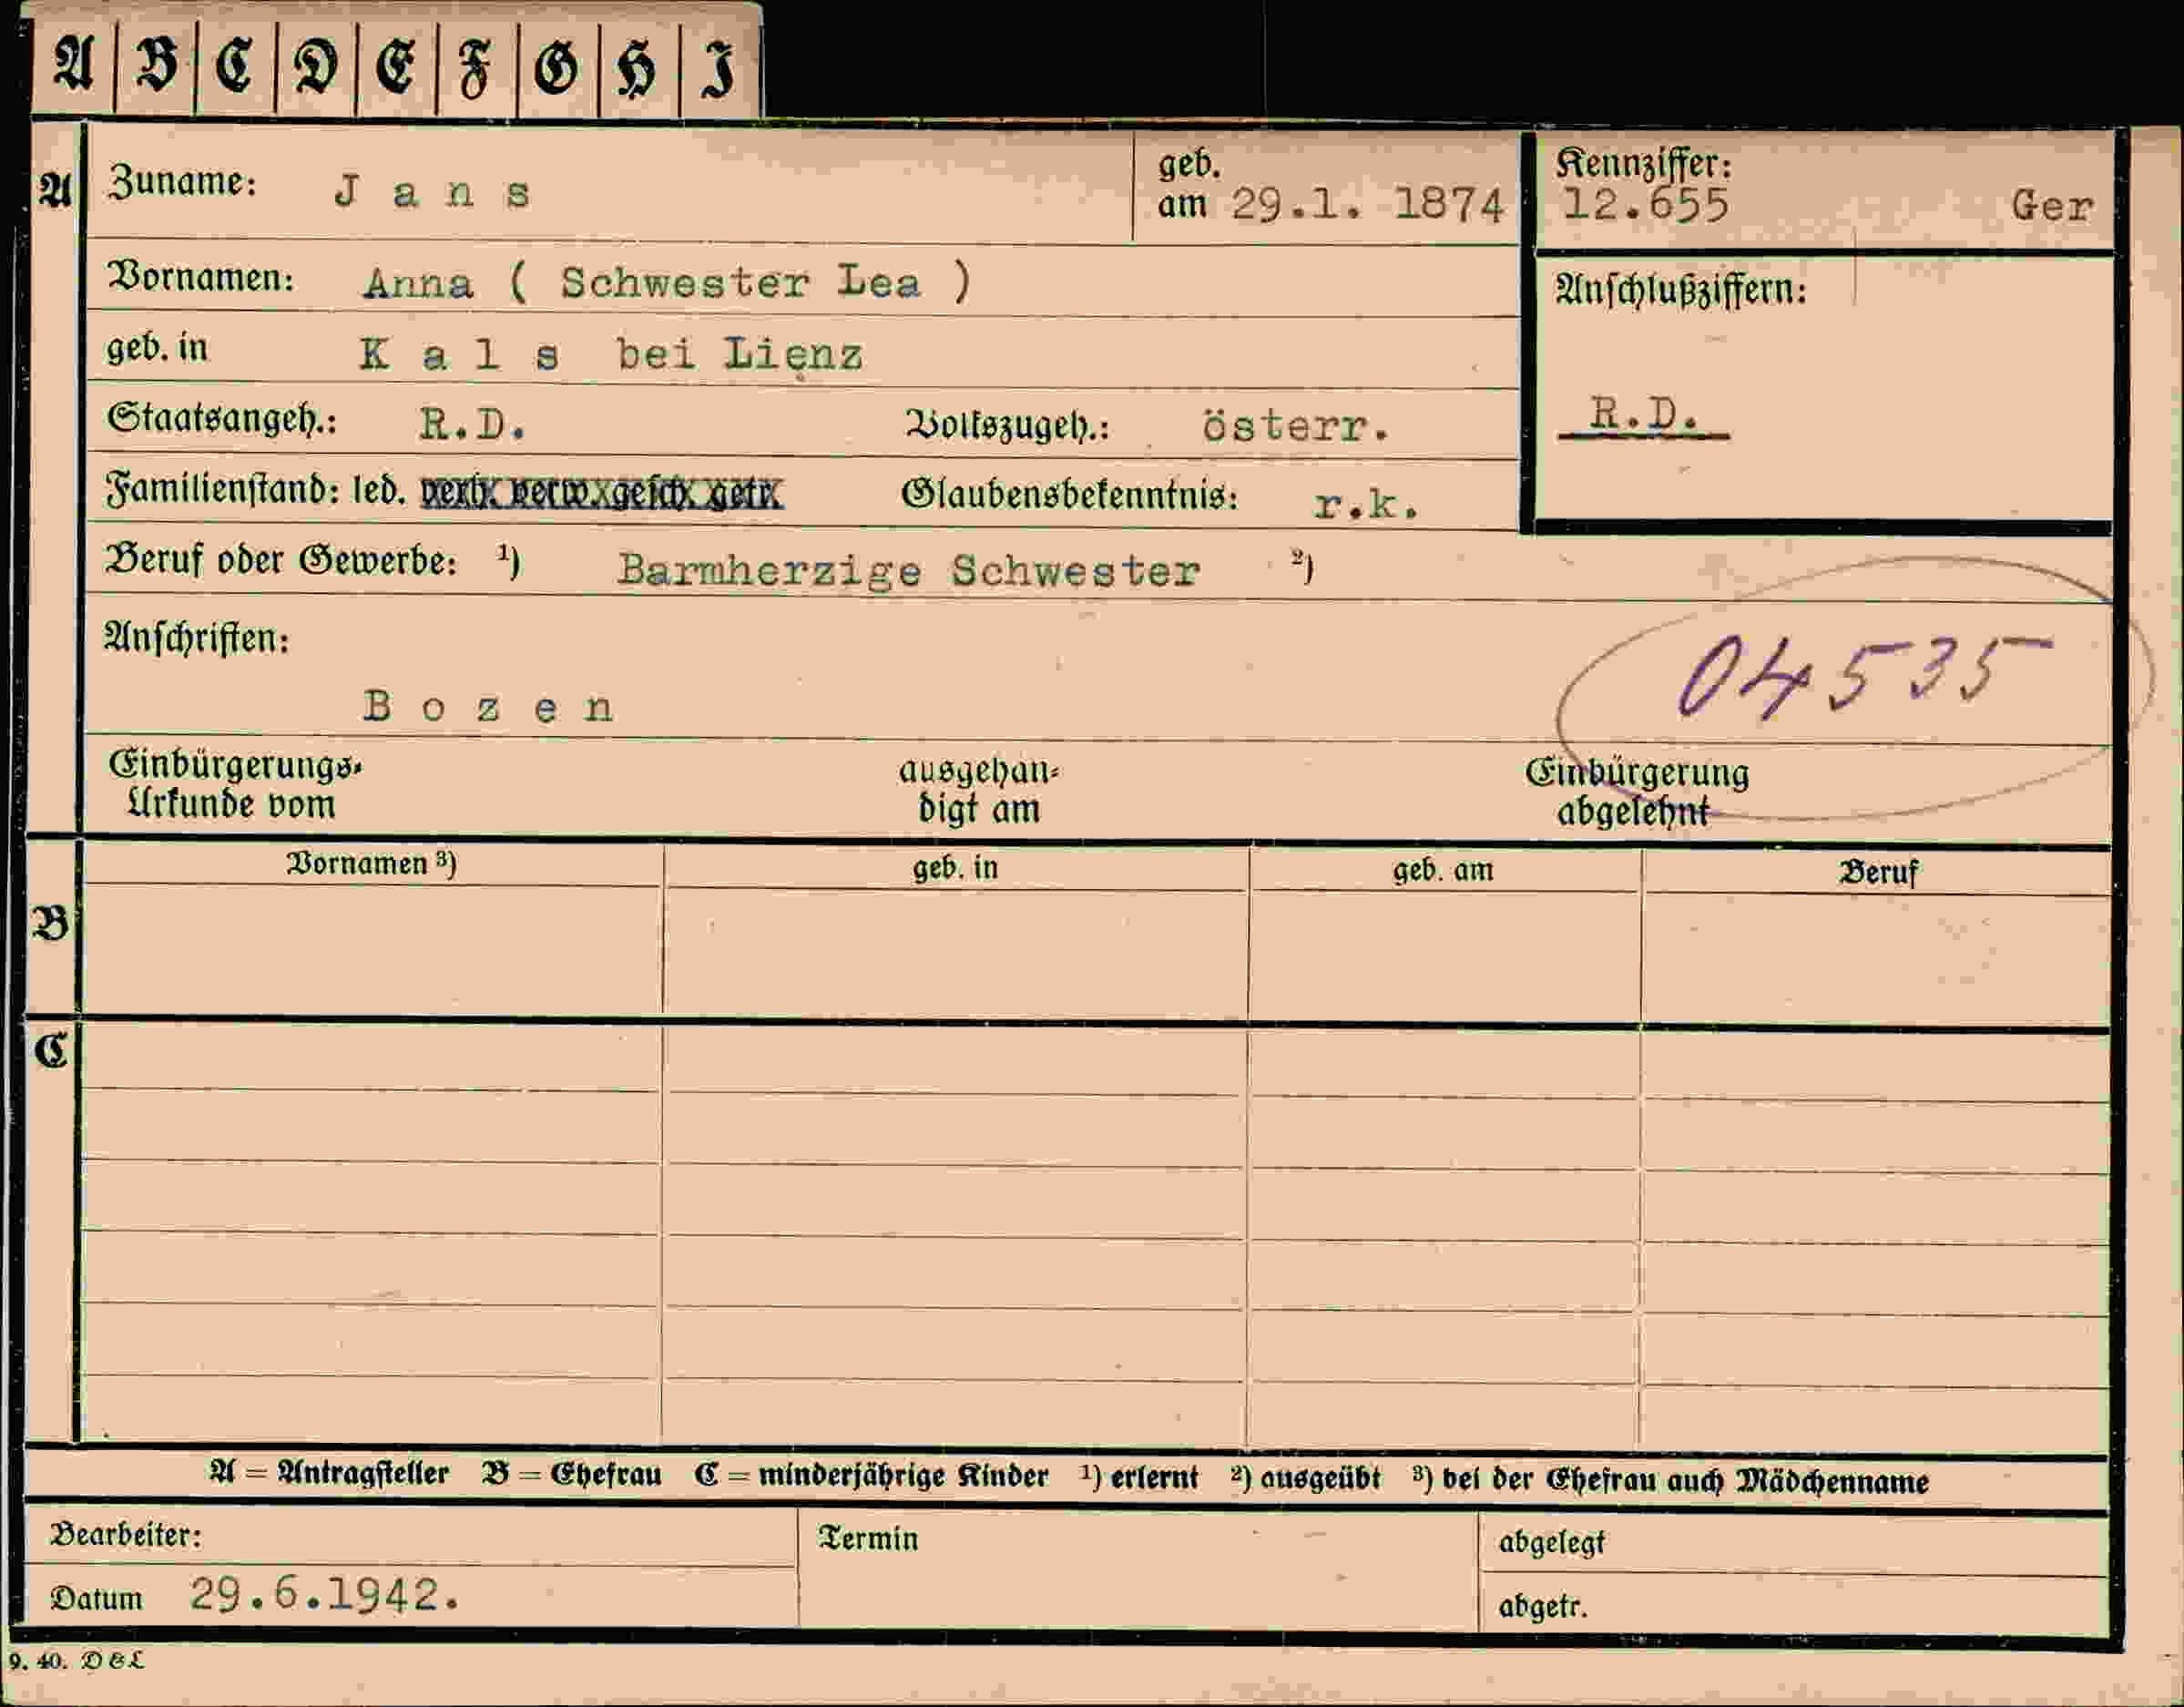 A B C D E F G H I
A
Zuname: Jans
geb. am 29.1. 1874
Kennziffer: 12.655 Ger
Vornamen: Anna ( Schwester Lea )
Anschlußziffern:
geb. in Kals bei Lienz
Staatsangeh.: R.D. Volkszugeh.: österr.
R.D.
Familienstand: led. verh. verw. gesch. getr. Glaubensbekenntnis: r.k.
Beruf oder Gewerbe: ¹) Barmherzige Schwester ²)
Anschriften:
04535
Bozen
Einbürgerungs- ausgehän- Einbürgerung
Urkunde vom digt am abgelehnt
Vornamen ³) geb. in geb. am Beruf
B
C
A = Antragsteller B = Ehefrau C = minderjährige Kinder ¹) erlernt ²) ausgeübt ³) bei der Ehefrau auch Mädchenname
Bearbeiter: Termin abgelegt
Datum 29.6.1942. abgetr.
9. 40. D&L